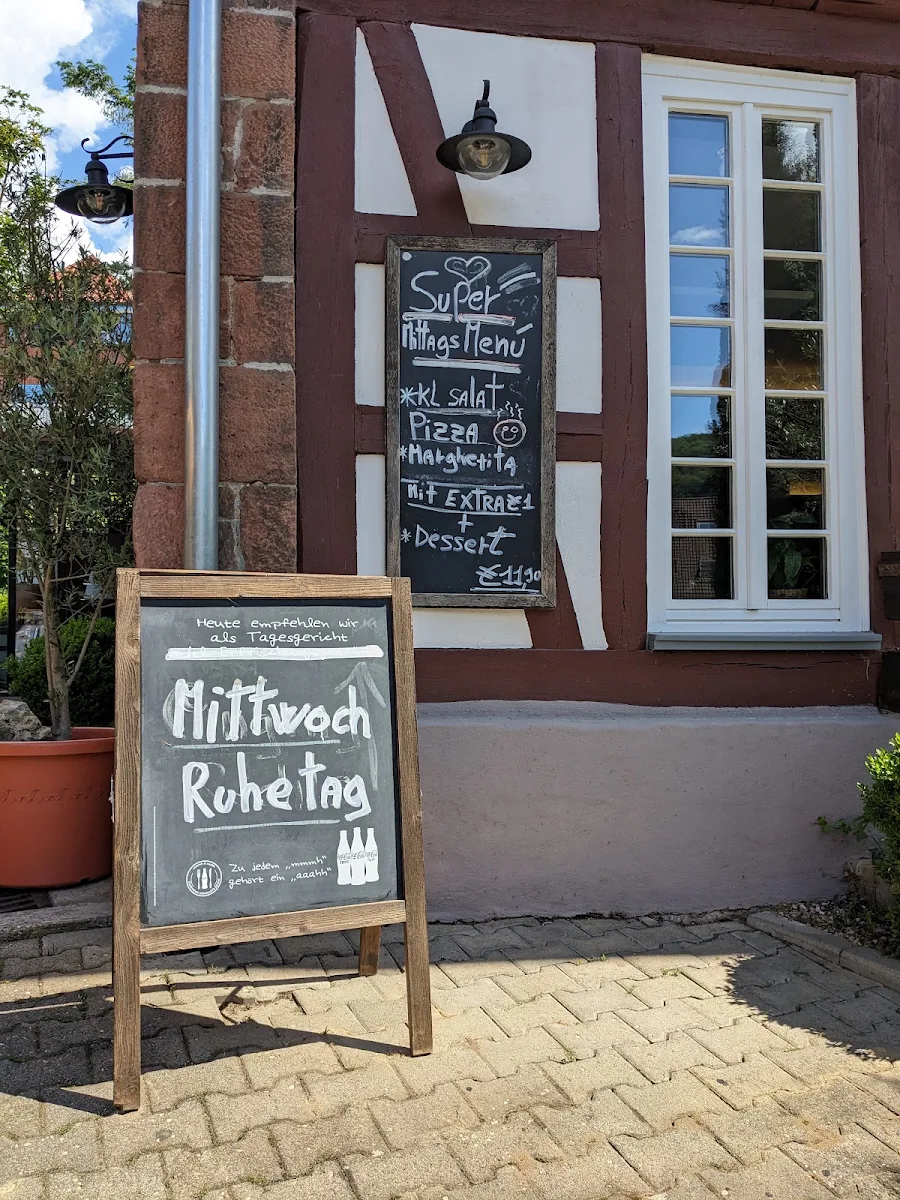 Super
MittagsMenú
*KL SALAT
PIZZA
*Margherita
Mit EXTRA €1
+
*Dessert
€11,90
Heute empfehlen wir
als Tagesgericht
Mittwoch
Ruhetag
Zu jedem „mmmh"
gehört ein „aaahh"